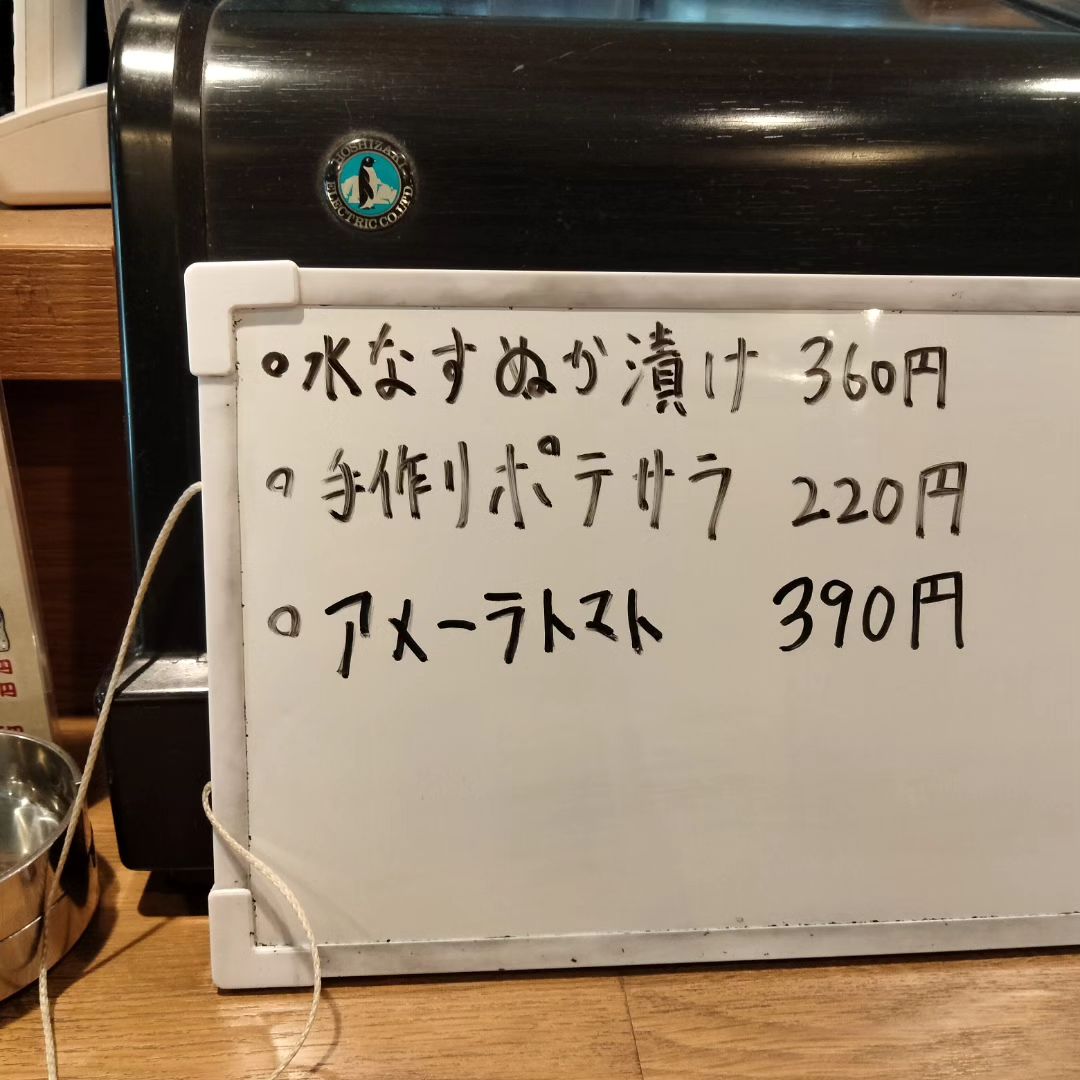 HOSHIZAKI
ELECTRIC CO.LTD
○水なすぬか漬け 360円
○手作りポテサラ 220円
○アメーラトマト 390円
円
円
円